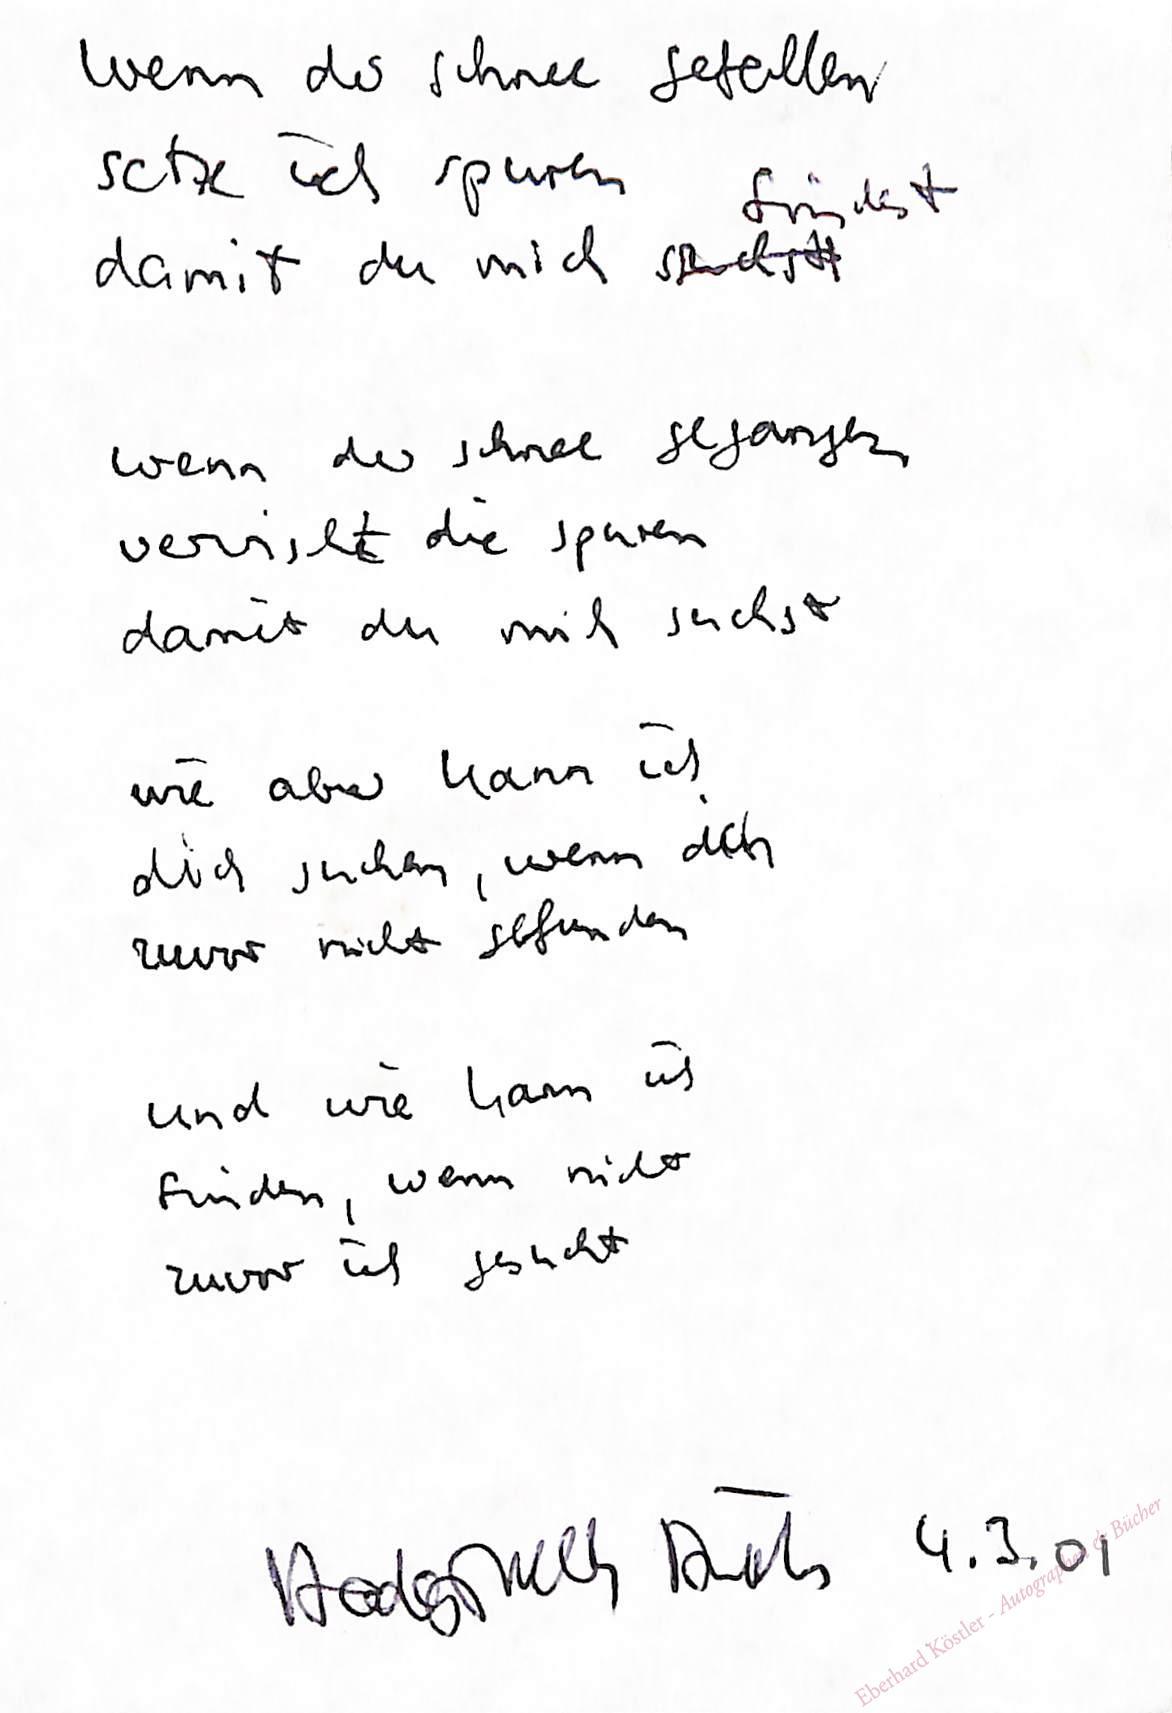 wenn der schnee gefallen
setze ich spuren
findest
damit du mich suchst
wenn der schnee gegangen
verwischt die spuren
damit du mich suchst
wie aber kann ich
dich suchen, wenn dich
zuvor nicht gefunden
und wie kann ich
finden, wenn nicht
zuvor ich gesucht
4.3.01
Eberhard Köstler - Autographen & Bücher